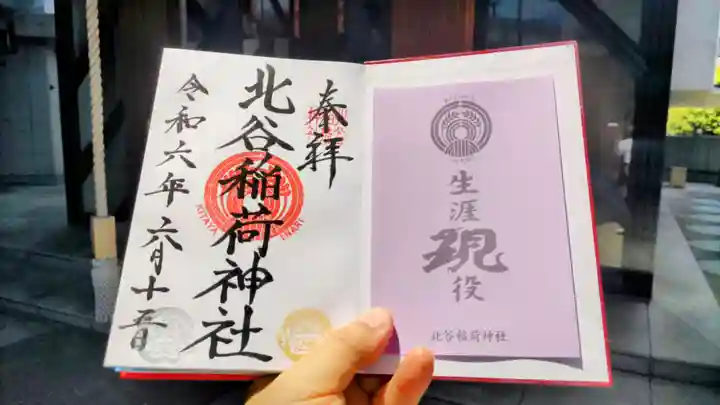 奉拝
北谷稲荷神社
KITAYA INARI
令和六年六月十五日
INARI
生涯
現
役
北谷稲荷神社